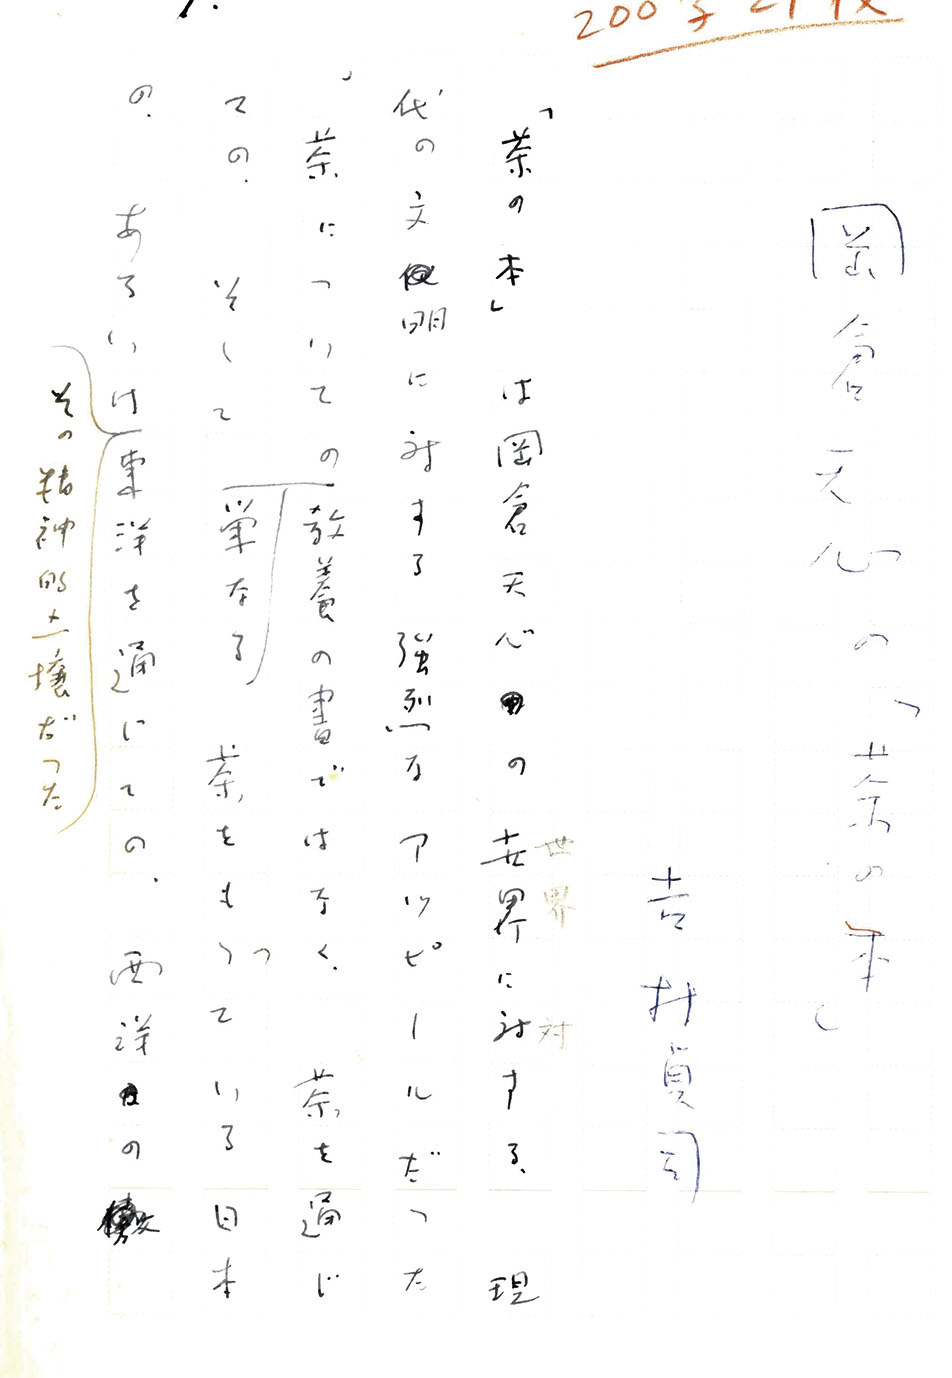 1.
200字
岡倉天心の「茶の本」
吉村貞司
「茶の本」は岡倉天心の世界に対する、現
世界 対
代の文明に対する強烈なアッピールだった
、茶についての教養の書ではなく、茶を通じ
ての、そして単なる茶をもっている日本
の、あるいは東洋を通じての、西洋の
その精神的土壌だった